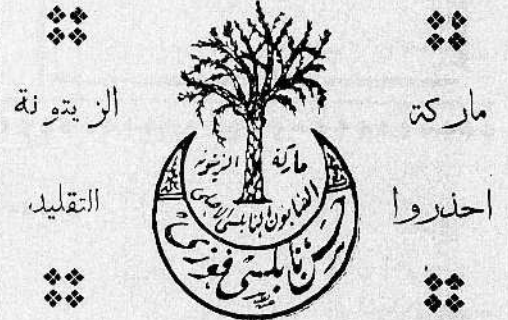 ماركة الزيتونة
احذروا التقليد
ماركة الزيتونه
الصابون النابلسي الاصلي
حسن نابلسي فخري